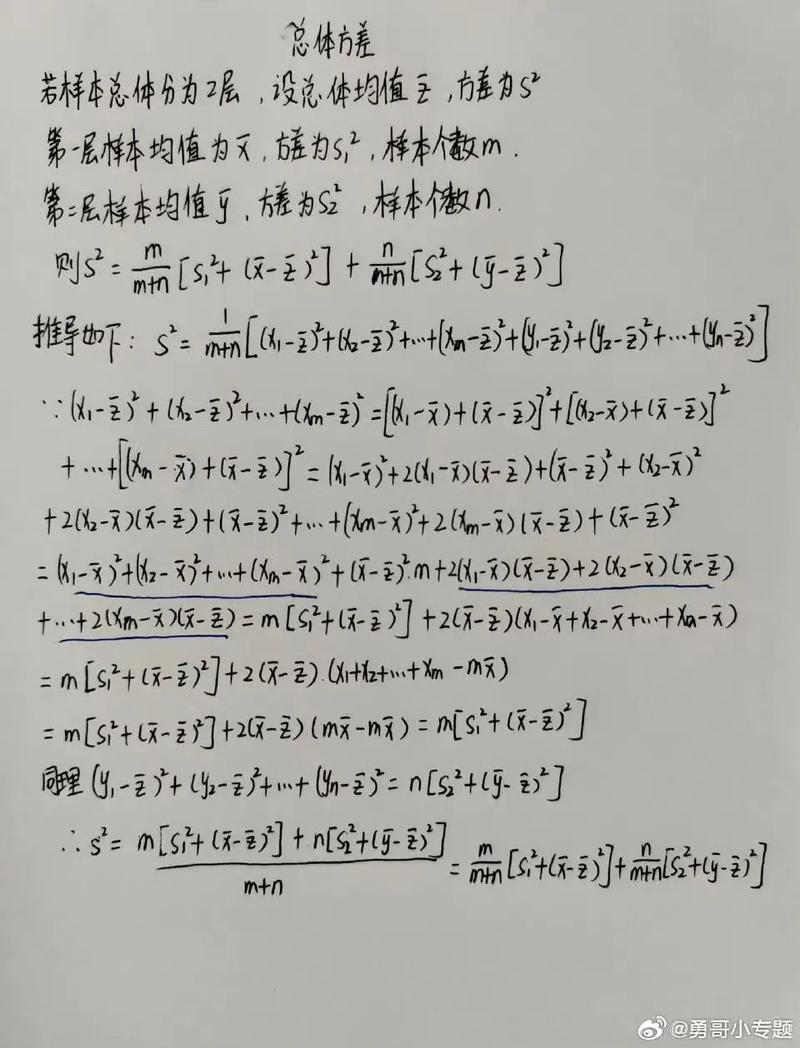 总体方差
若样本总体分为2层，设总体均值 z̄，方差为S²
第一层样本均值为x̄，方差为S₁²，样本个数m．
第二层样本均值ȳ，方差为S₂²，样本个数n．
则S² = m/(m+n) [S₁²+(x̄-z̄)²] + n/(m+n) [S₂²+(ȳ-z̄)²]
推导如下：S² = 1/(m+n) [(x₁-z̄)²+(x₂-z̄)²+…+(xm-z̄)²+(y₁-z̄)²+(y₂-z̄)²+…+(yn-z̄)²]
∵(x₁-z̄)²+(x₂-z̄)²+…+(xm-z̄)² = [(x₁-x̄)+(x̄-z̄)]²+[(x₂-x̄)+(x̄-z̄)]²
+…+[(xm-x̄)+(x̄-z̄)]² = (x₁-x̄)²+2(x₁-x̄)(x̄-z̄)+(x̄-z̄)²+(x₂-x̄)²
+2(x₂-x̄)(x̄-z̄)+(x̄-z̄)²+…+(xm-x̄)²+2(xm-x̄)(x̄-z̄)+(x̄-z̄)²
=(x₁-x̄)²+(x₂-x̄)²+…+(xm-x̄)²+(x̄-z̄)²·m+2(x₁-x̄)(x̄-z̄)+2(x₂-x̄)(x̄-z̄)
+…+2(xm-x̄)(x̄-z̄) = m[S₁²+(x̄-z̄)²]+2(x̄-z̄)(x₁-x̄+x₂-x̄+…+xn-x̄)
=m[S₁²+(x̄-z̄)²]+2(x̄-z̄)·(x₁+x₂+…+xm-mx̄)
=m[S₁²+(x̄-z̄)²]+2(x̄-z̄)(mx̄-mx̄) = m[S₁²+(x̄-z̄)²]
同理(y₁-z̄)²+(y₂-z̄)²+…+(yn-z̄)² = n[S₂²+(ȳ-z̄)²]
∴S² = (m[S₁²+(x̄-z̄)²]+n[S₂²+(ȳ-z̄)²])/(m+n) = m/(m+n) [S₁²+(x̄-z̄)²]+n/(m+n) [S₂²+(ȳ-z̄)²]
@勇哥小专题